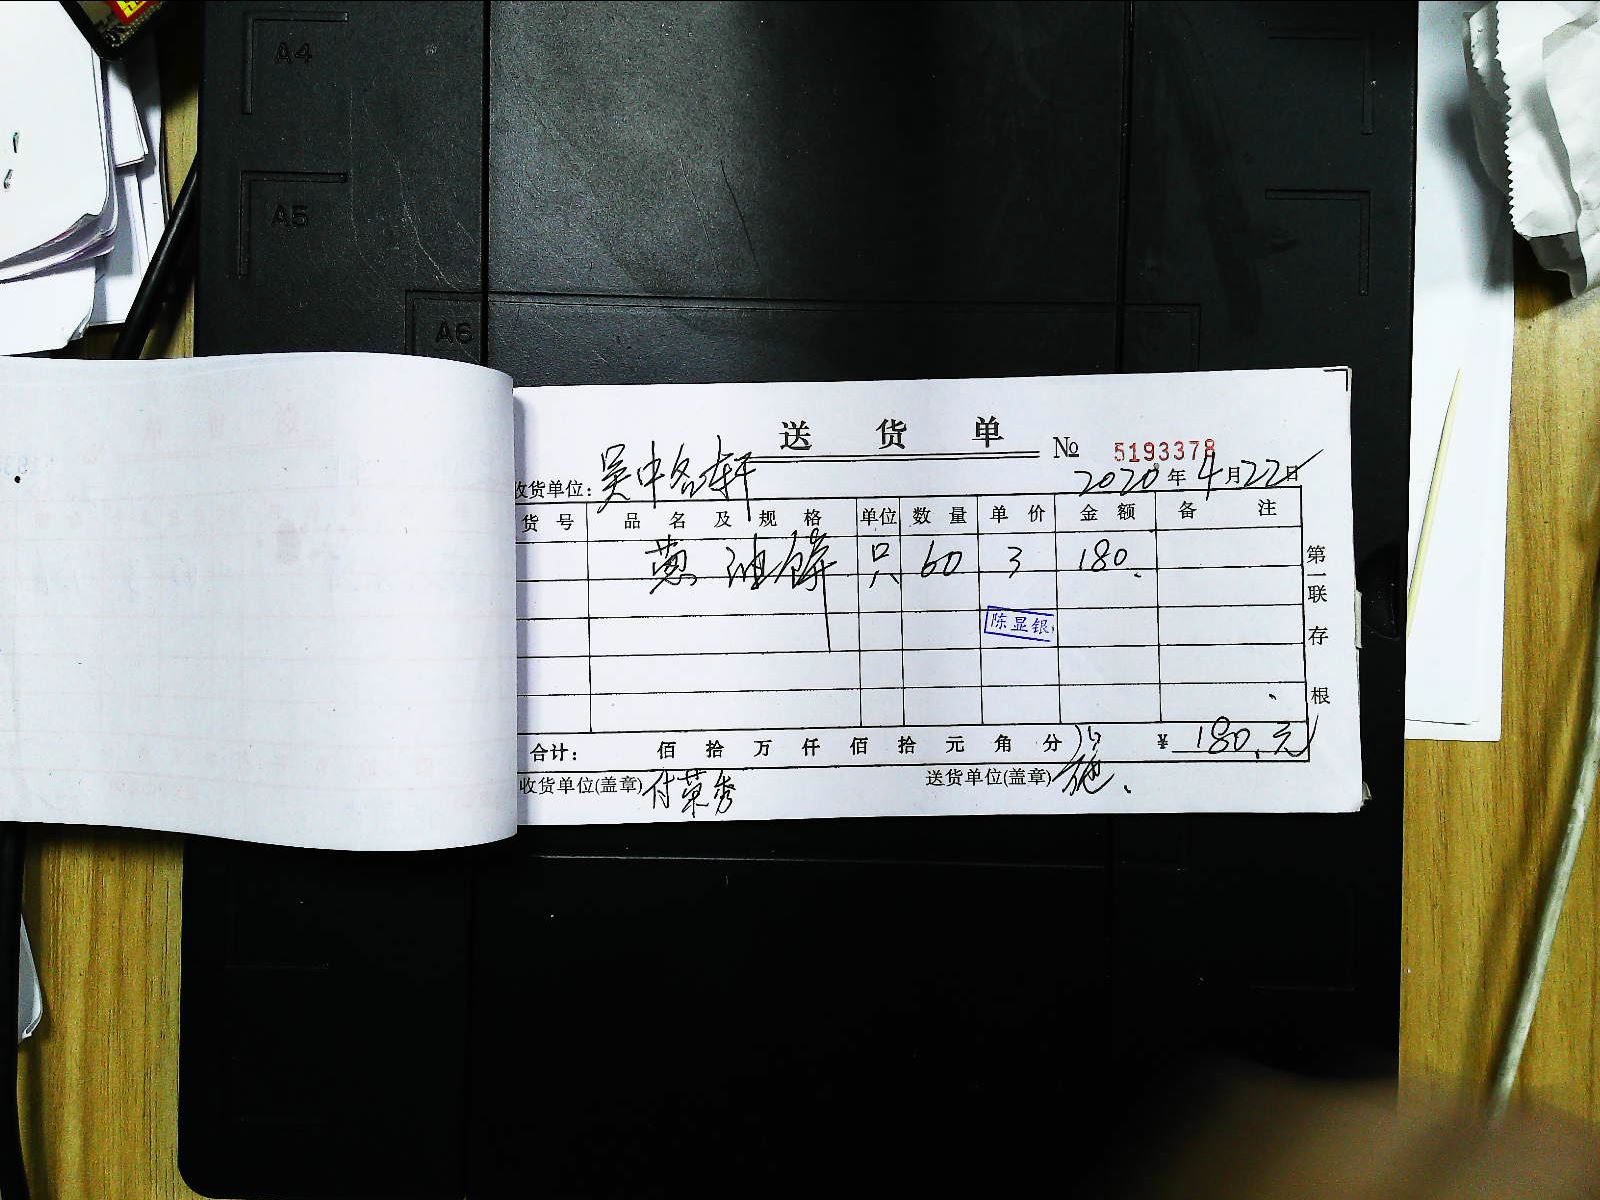 A4
A5
A6
送货单
№ 5193378
收货单位: 吴中名轩
2020年4月22日
货号 品名及规格 单位 数量 单价 金额 备注
葱油饼 只 60 3 180.
陈显银
第一联存根
合计: 佰拾万仟佰拾元角分 ¥ 180.元
收货单位(盖章) 付菜秀 送货单位(盖章)